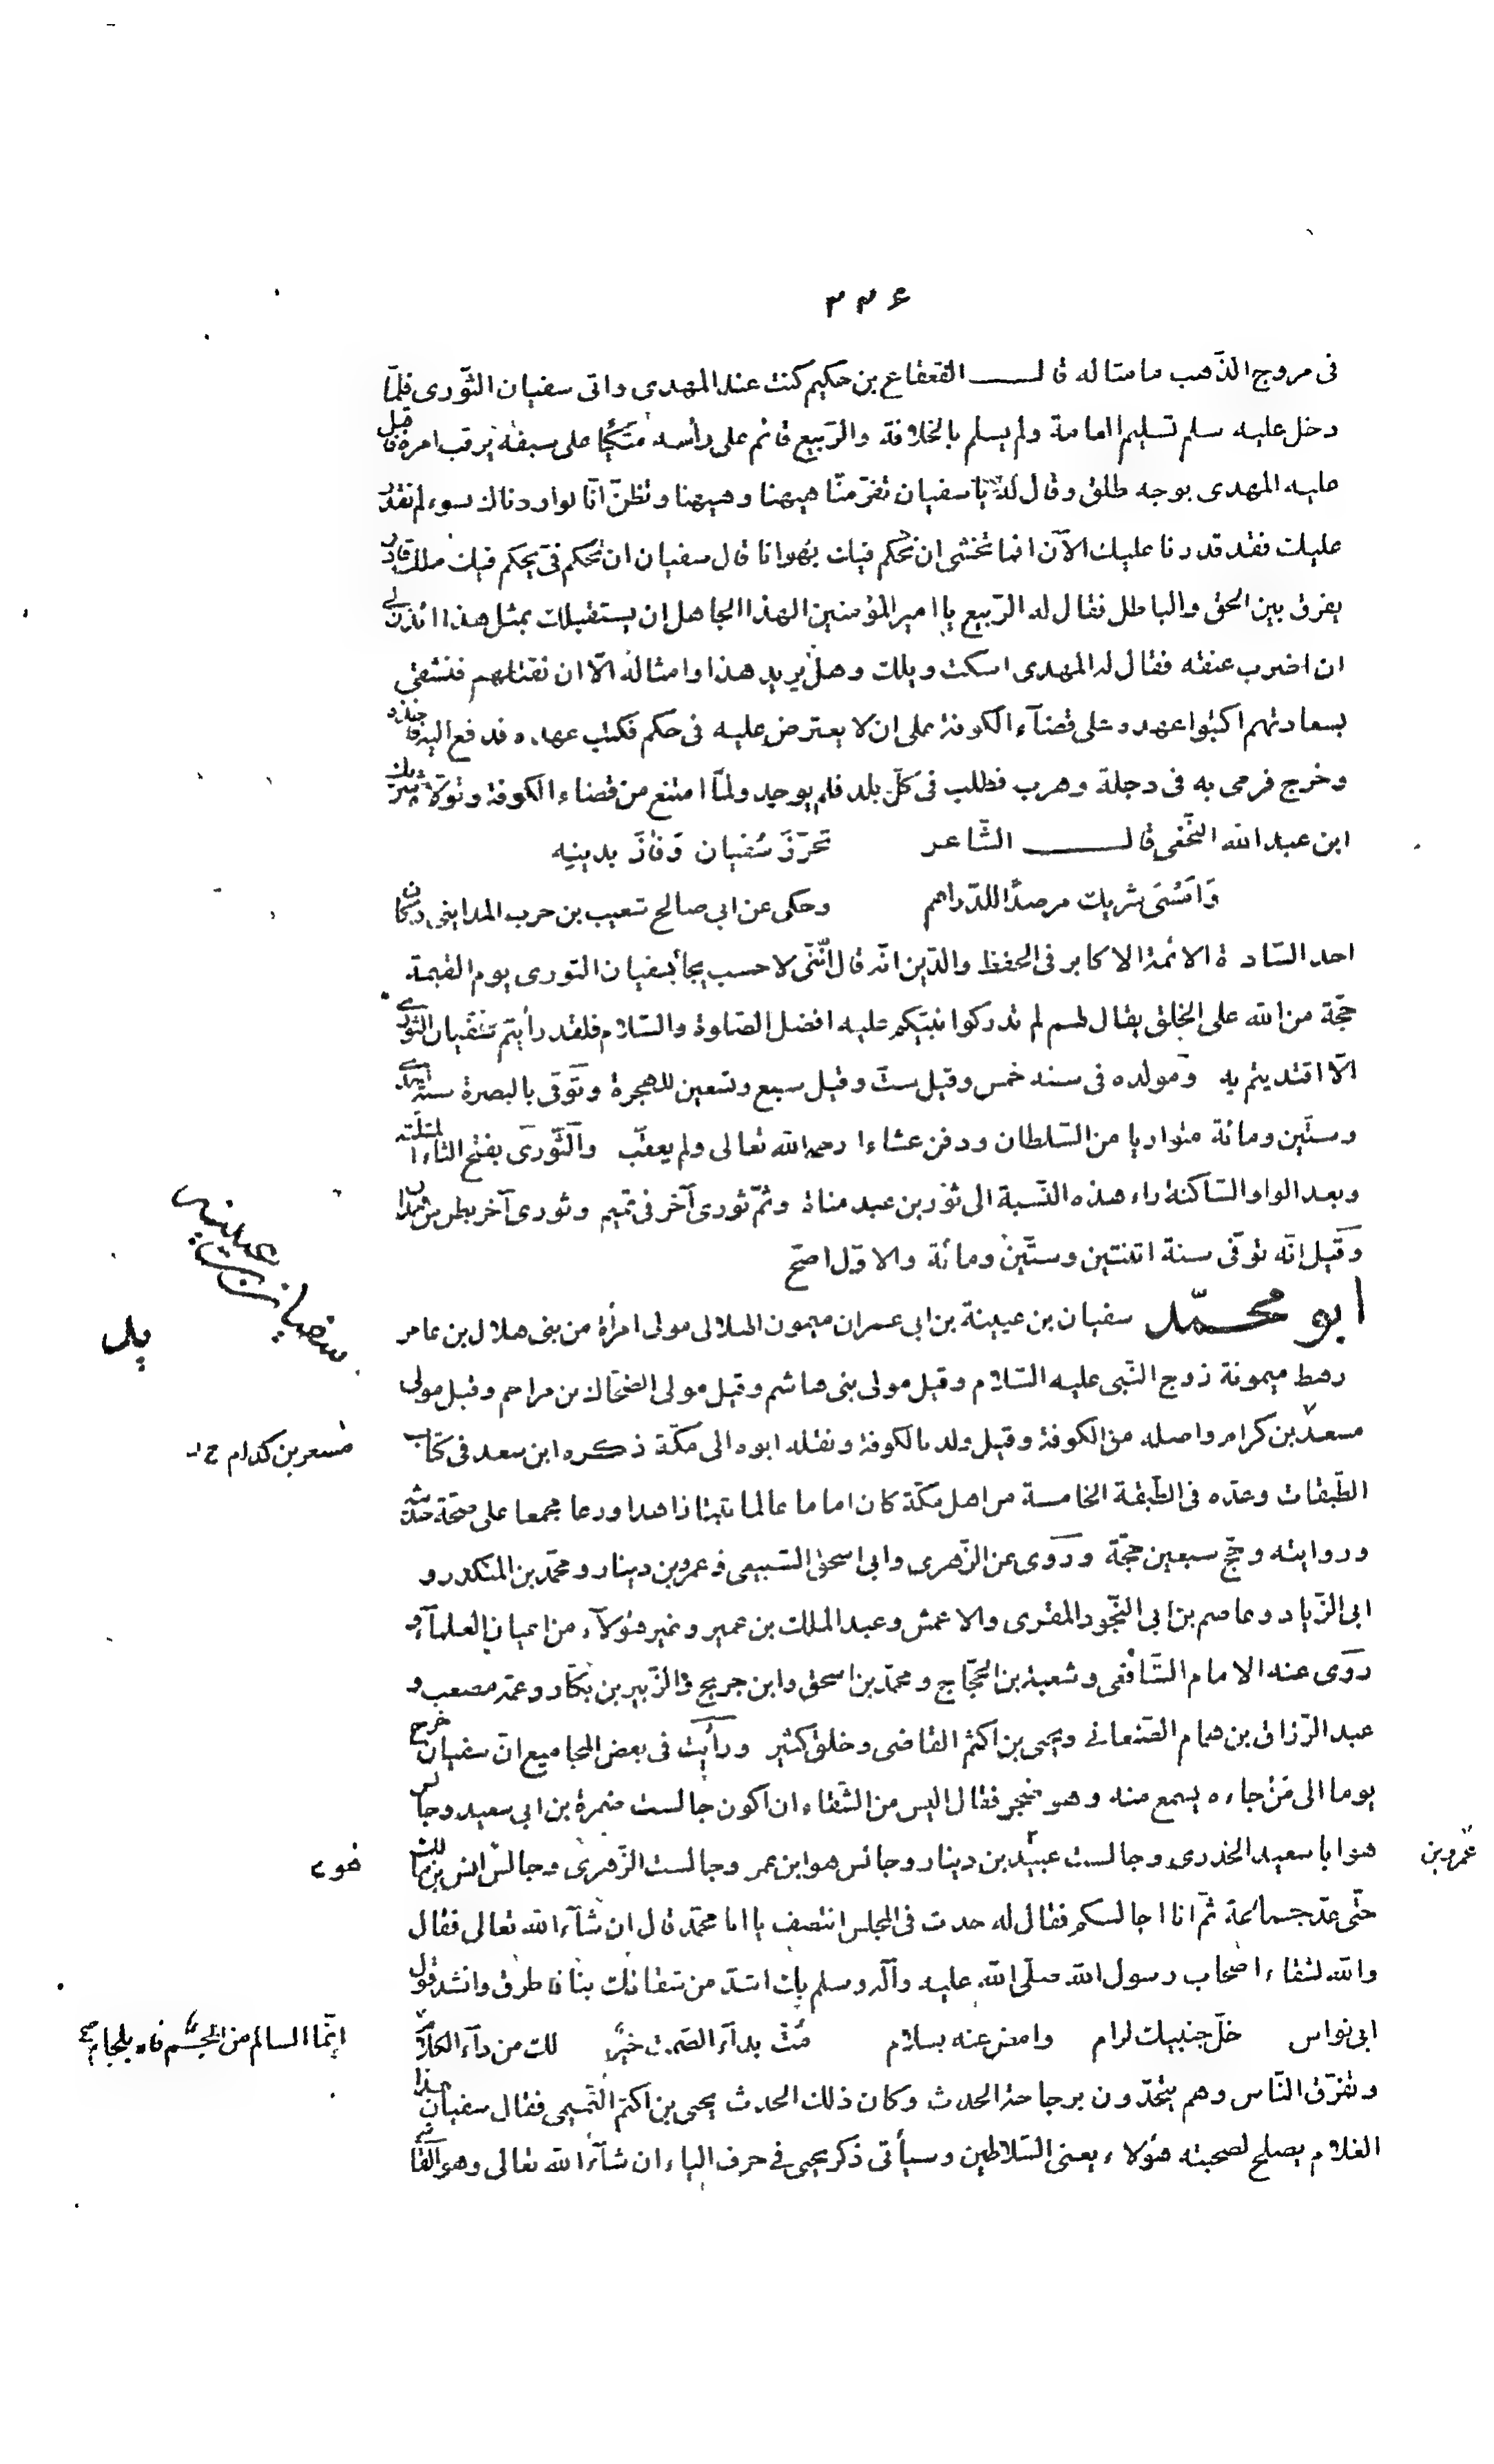 ۲۲۶
فى مروج الذّهب ما مثاله قال القعقاع بن حكيم كنت عند المهدى واتى سفيان الثّورى فلمّا
دخل عليه سلم تسليم العامة ولم يسلم بالخلافة والرّبيع قائم على رأسه متّكئا على سيفه يرقب امره فاقبل
عليه المهدى بوجه طلق وقال له يا سفيان تفرّ منّا هيهنا وهيهنا وتظنّ انّا لو اردناك بسوء لم نقدر
عليك فقد قدرنا عليك الآن افما تخشى ان نحكم فيك بهوانا قال سفيان ان تحكم فىّ يحكم فيك ملك قادر
يفرق بين الحق والباطل فقال له الرّبيع يا امير المؤمنين الهذا الجاهل ان يستقبلك بمثل هذا ائذن لى
ان اضرب عنقه فقال له المهدى اسكت ويلك وهل يريد هذا وامثاله الّا ان نقتلهم فنشقى
بسعادتهم اكتبوا عهده على قضآء الكوفة على ان لا يعترض عليه فى حكم فكتب عهده ودفع اليه فاخذه
وخرج فرمى به فى دجلة وهرب فطلب فى كلّ بلد فلم يوجد ولمّا امتنع من قضاء الكوفة وتولاه شريك
ابن عبد الله النّخعى قال الشّاعر تحرّز سُفيان وفازَ بدينِه
وَامسَى شريك مرصدًا للدّراهم وحكى عن ابى صالح شعيب بن حرب المداينى وكان
احد السّادة الائمة الاكابر فى الحفظ والدّين انّه قال انّنى لاحسب يجأ بسفيان الثورى يوم القيمة
حجّة من الله على الخلق يقال لهم لم تدركوا نبيّكم عليه افضل الصّلوة والسّلام فلقد رأيتم سفيان الثورى
الّا اقتديتم به ومولده فى سنة خمس وقيل ستّ وقيل سبع وتسعين للهجرة وتوفّى بالبصرة سنة احدى
وستّين ومائة متواريا من السّلطان ودفن عشاءا رحمه الله تعالى ولم يعقّب والثّورى بفتح الثاء المثلثة
وبعد الواو السّاكنة راء هذه النّسبة الى ثور بن عبد مناة وثمّ ثورى آخر فى تميم وثورى آخر بطن من همدان
وقيل انّه توفّى سنة اثنتين وستّين ومائة والاوّل اصحّ
سفيان بن عيينه
ابو محمّد سفيان بن عيينة بن ابى عمران ميمون الهلالى مولى امرأة من بنى هلال بن عامر
رهط ميمونة زوج النّبى عليه السّلام وقيل مولى بنى هاشم وقيل مولى الضّحّاك بن مزاحم وقيل مولى
مسعد بن كرام واصله من الكوفة وقيل ولد بالكوفة ونقله ابوه الى مكّة ذكره ابن سعد فى كتاب
مسعر بن كدام
الطّبقات وعدّه فى الطّبقة الخامسة من اهل مكّة كان اماما عالما ثبتا زاهدا ورعا مجمعا على صحّة حديثه
وروايته وحجّ سبعين حجّة وروى عن الزّهرى وابى اسحق السّبيعى وعمرو بن دينار ومحمّد بن المنكدر و
ابى الزّياد وعاصم بن ابى النّجود المقرى والاعمش وعبد الملك بن عمير وغير هؤلآء من اعيان العلمآء و
روى عنه الامام الشّافعى وشعبة بن الحجّاج ومحمّد بن اسحق وابن جريج والزّبير بن بكّار وعمّه مصعب و
عبد الرّزاق بن همام الصّنعانى ويحيى بن اكثم القاضى وخلق كثير ورأيت فى بعض المجاميع انّ سفيان خرج
يوما الى مَنْ جاءه يسمع منه وهو ضجر فقال اليس من الشّقاء ان اكون جالست ضمرة بن ابى سعيد وجالس
هو ابا سعيد الخدرى وجالست عبيد بن دينار وجالس هو ابن عمر وجالست الزّهرى وجالس انس بن مالك
عمرو بن
هو
حتّى عدّ جماعة ثمّ انا اجالسكم فقال له حدث فى المجلس انتصف يا ابا محمّد قال ان شآء الله تعالى فقال
والله لشقاء اصحاب رسول الله صلّى الله عليه وآله وسلم بك اشدّ من شقائك بنا فاطرق وانشد قول
ابى نواس خلّ جنبيك لرام وامض عنه بسلام مُتْ بداء الصّمت خيرٌ لك من داء الكلام
انّما السالم من الجم فاه بلجام صح
وتفرّق النّاس وهم يتحدّثون برجاحة الحدث وكان ذلك الحدث يحيى بن اكثم التّميمى فقال سفيان هذا
الغلام يصلح لصحبته هؤلاء يعنى السّلاطين وسيأتى ذكر يحيى فى حرف الياء ان شآء الله تعالى وهو القا